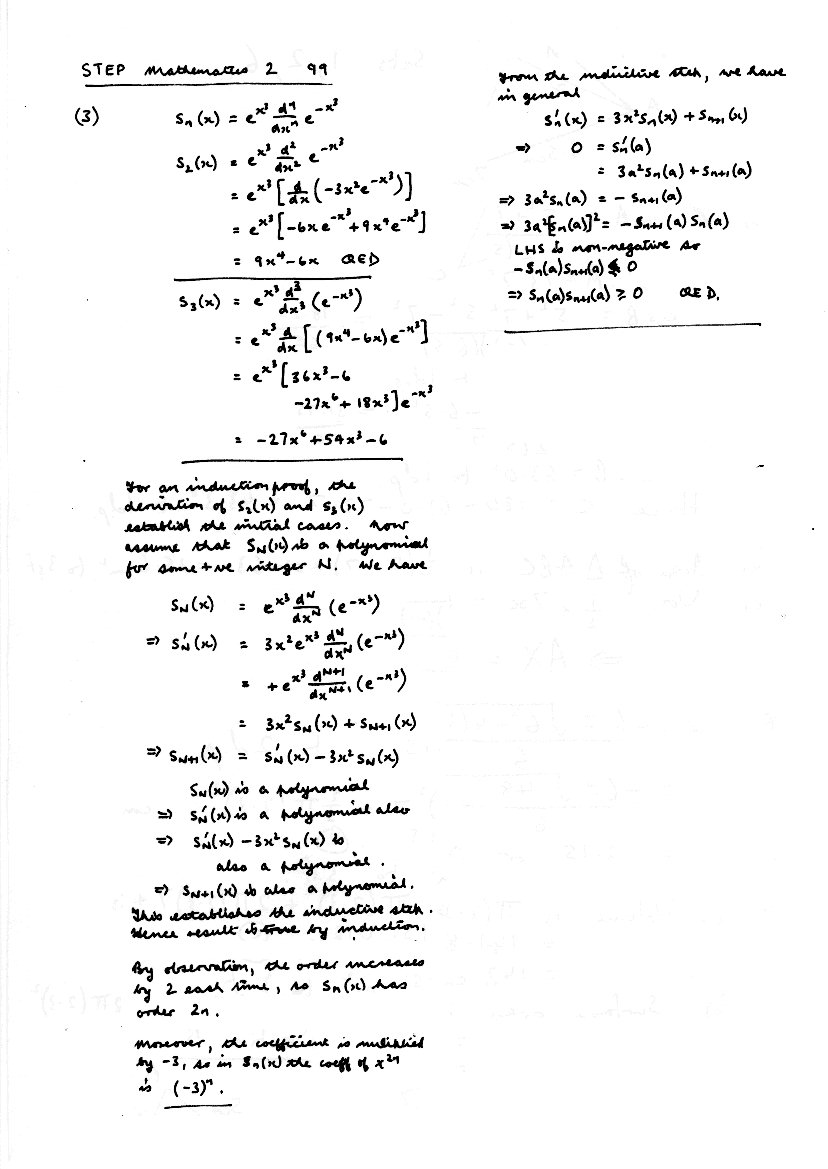 STEP Mathematics 2 99
(3) Sₙ(x) = e^{x³} dⁿ/dxⁿ e^{-x³}
S₂(x) = e^{x³} d²/dx² e^{-x³}
= e^{x³} [d/dx (-3x²e^{-x³})]
= e^{x³} [-6xe^{-x³} + 9x⁴e^{-x³}]
= 9x⁴ - 6x QED
S₃(x) = e^{x³} d³/dx³ (e^{-x³})
= e^{x³} d/dx [(9x⁴ - 6x)e^{-x³}]
= e^{x³} [36x³ - 6
-27x⁶ + 18x³]e^{-x³}
= -27x⁶ + 54x³ - 6
For an induction proof, the
derivation of S₂(x) and S₃(x)
establish the initial cases. Now
assume that S_N(x) is a polynomial
for some +ve integer N. We have
S_N(x) = e^{x³} d^N/dx^N (e^{-x³})
⇒ S_N′(x) = 3x²e^{x³} d^N/dx^N (e^{-x³})
= +e^{x³} d^{N+1}/dx^{N+1} (e^{-x³})
= 3x²S_N(x) + S_{N+1}(x)
⇒ S_{N+1}(x) = S_N′(x) - 3x²S_N(x)
S_N(x) is a polynomial
⇒ S_N′(x) is a polynomial also
⇒ S_N′(x) - 3x²S_N(x) is
also a polynomial.
⇒ S_{N+1}(x) is also a polynomial.
This establishes the inductive step.
Hence result is true by induction.
By observation, the order increases
by 2 each time, so Sₙ(x) has
order 2n.
Moreover, the coefficient is multiplied
by -3, so in Sₙ(x) the coeff of x²ⁿ
is (-3)ⁿ.
From the inductive step, we have
in general
Sₙ′(x) = 3x²Sₙ(x) + Sₙ₊₁(x)
⇒ 0 = Sₙ′(a)
= 3a²Sₙ(a) + Sₙ₊₁(a)
⇒ 3a²Sₙ(a) = -Sₙ₊₁(a)
⇒ 3a²[Sₙ(a)]² = -Sₙ₊₁(a)Sₙ(a)
LHS is non-negative so
-Sₙ(a)Sₙ₊₁(a) ≤ 0
⇒ Sₙ(a)Sₙ₊₁(a) ≥ 0 QED.